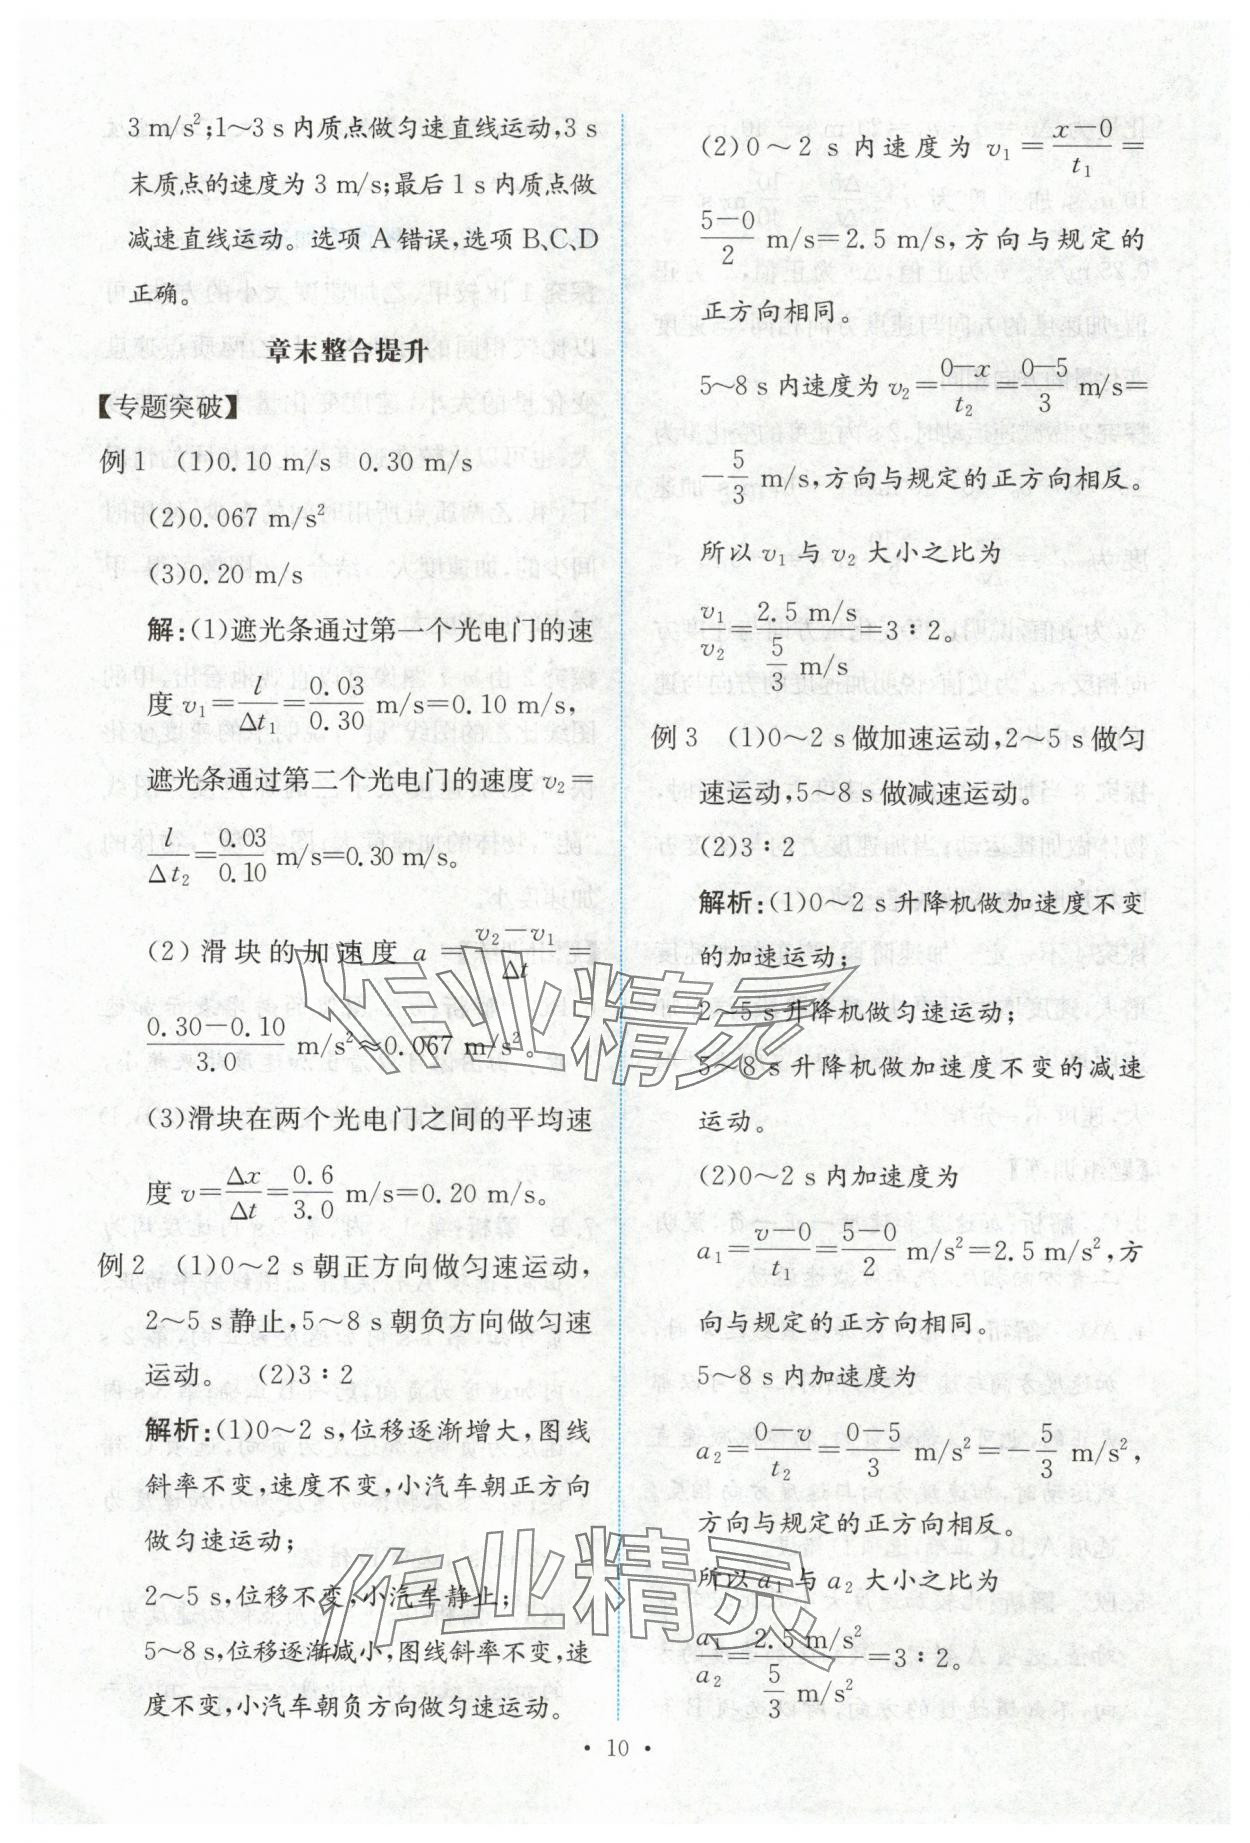 3 m/s²;1～3 s内质点做匀速直线运动,3 s
末质点的速度为3 m/s;最后1 s内质点做
减速直线运动。选项A错误,选项B、C、D
正确。
章末整合提升
【专题突破】
例1 (1)0.10 m/s 0.30 m/s
(2)0.067 m/s²
(3)0.20 m/s
解:(1)遮光条通过第一个光电门的速
度v₁=l/Δt₁=0.03/0.30 m/s=0.10 m/s,
遮光条通过第二个光电门的速度v₂=
l/Δt₂=0.03/0.10 m/s=0.30 m/s。
(2)滑块的加速度a=(v₂-v₁)/Δt=
(0.30-0.10)/3.0 m/s²≈0.067 m/s²。
(3)滑块在两个光电门之间的平均速
度v=Δx/Δt=0.6/3.0 m/s=0.20 m/s。
例2 (1)0～2 s朝正方向做匀速运动,
2～5 s静止,5～8 s朝负方向做匀速
运动。 (2)3∶2
解析:(1)0～2 s,位移逐渐增大,图线
斜率不变,速度不变,小汽车朝正方向
做匀速运动;
2～5 s,位移不变,小汽车静止;
5～8 s,位移逐渐减小,图线斜率不变,速
度不变,小汽车朝负方向做匀速运动。
(2)0～2 s内速度为v₁=(x-0)/t₁=
(5-0)/2 m/s=2.5 m/s,方向与规定的
正方向相同。
5～8 s内速度为v₂=(0-x)/t₂=(0-5)/3 m/s=
-5/3 m/s,方向与规定的正方向相反。
所以v₁与v₂大小之比为
v₁/v₂=2.5 m/s/(5/3 m/s)=3∶2。
例3 (1)0～2 s做加速运动,2～5 s做匀
速运动,5～8 s做减速运动。
(2)3∶2
解析:(1)0～2 s升降机做加速度不变
的加速运动;
2～5 s升降机做匀速运动;
5～8 s升降机做加速度不变的减速
运动。
(2)0～2 s内加速度为
a₁=(v-0)/t₁=(5-0)/2 m/s²=2.5 m/s²,方
向与规定的正方向相同。
5～8 s内加速度为
a₂=(0-v)/t₂=(0-5)/3 m/s²=-5/3 m/s²,
方向与规定的正方向相反。
所以a₁与a₂大小之比为
a₁/a₂=2.5 m/s²/(5/3 m/s²)=3∶2。
·10·
作业精灵
作业精灵